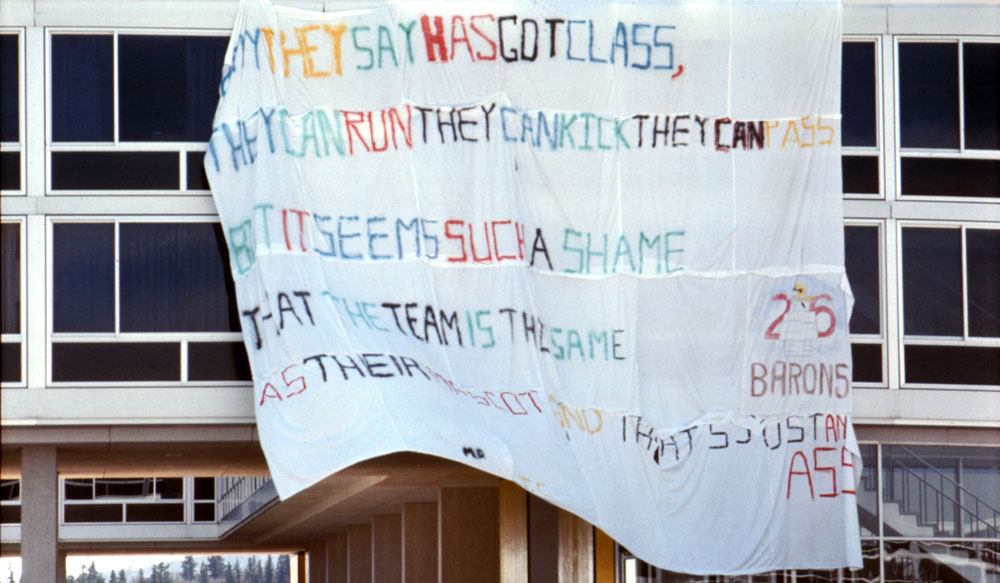 THEY SAY HAS GOT CLASS,
THEY CAN RUN THEY CAN KICK THEY CAN PASS
BUT IT SEEMS SUCH A SHAME
THAT THE TEAM IS THE SAME
AS THEIR MASCOT AND THAT'S JUST AN
ASS
26
BARONS
M.D